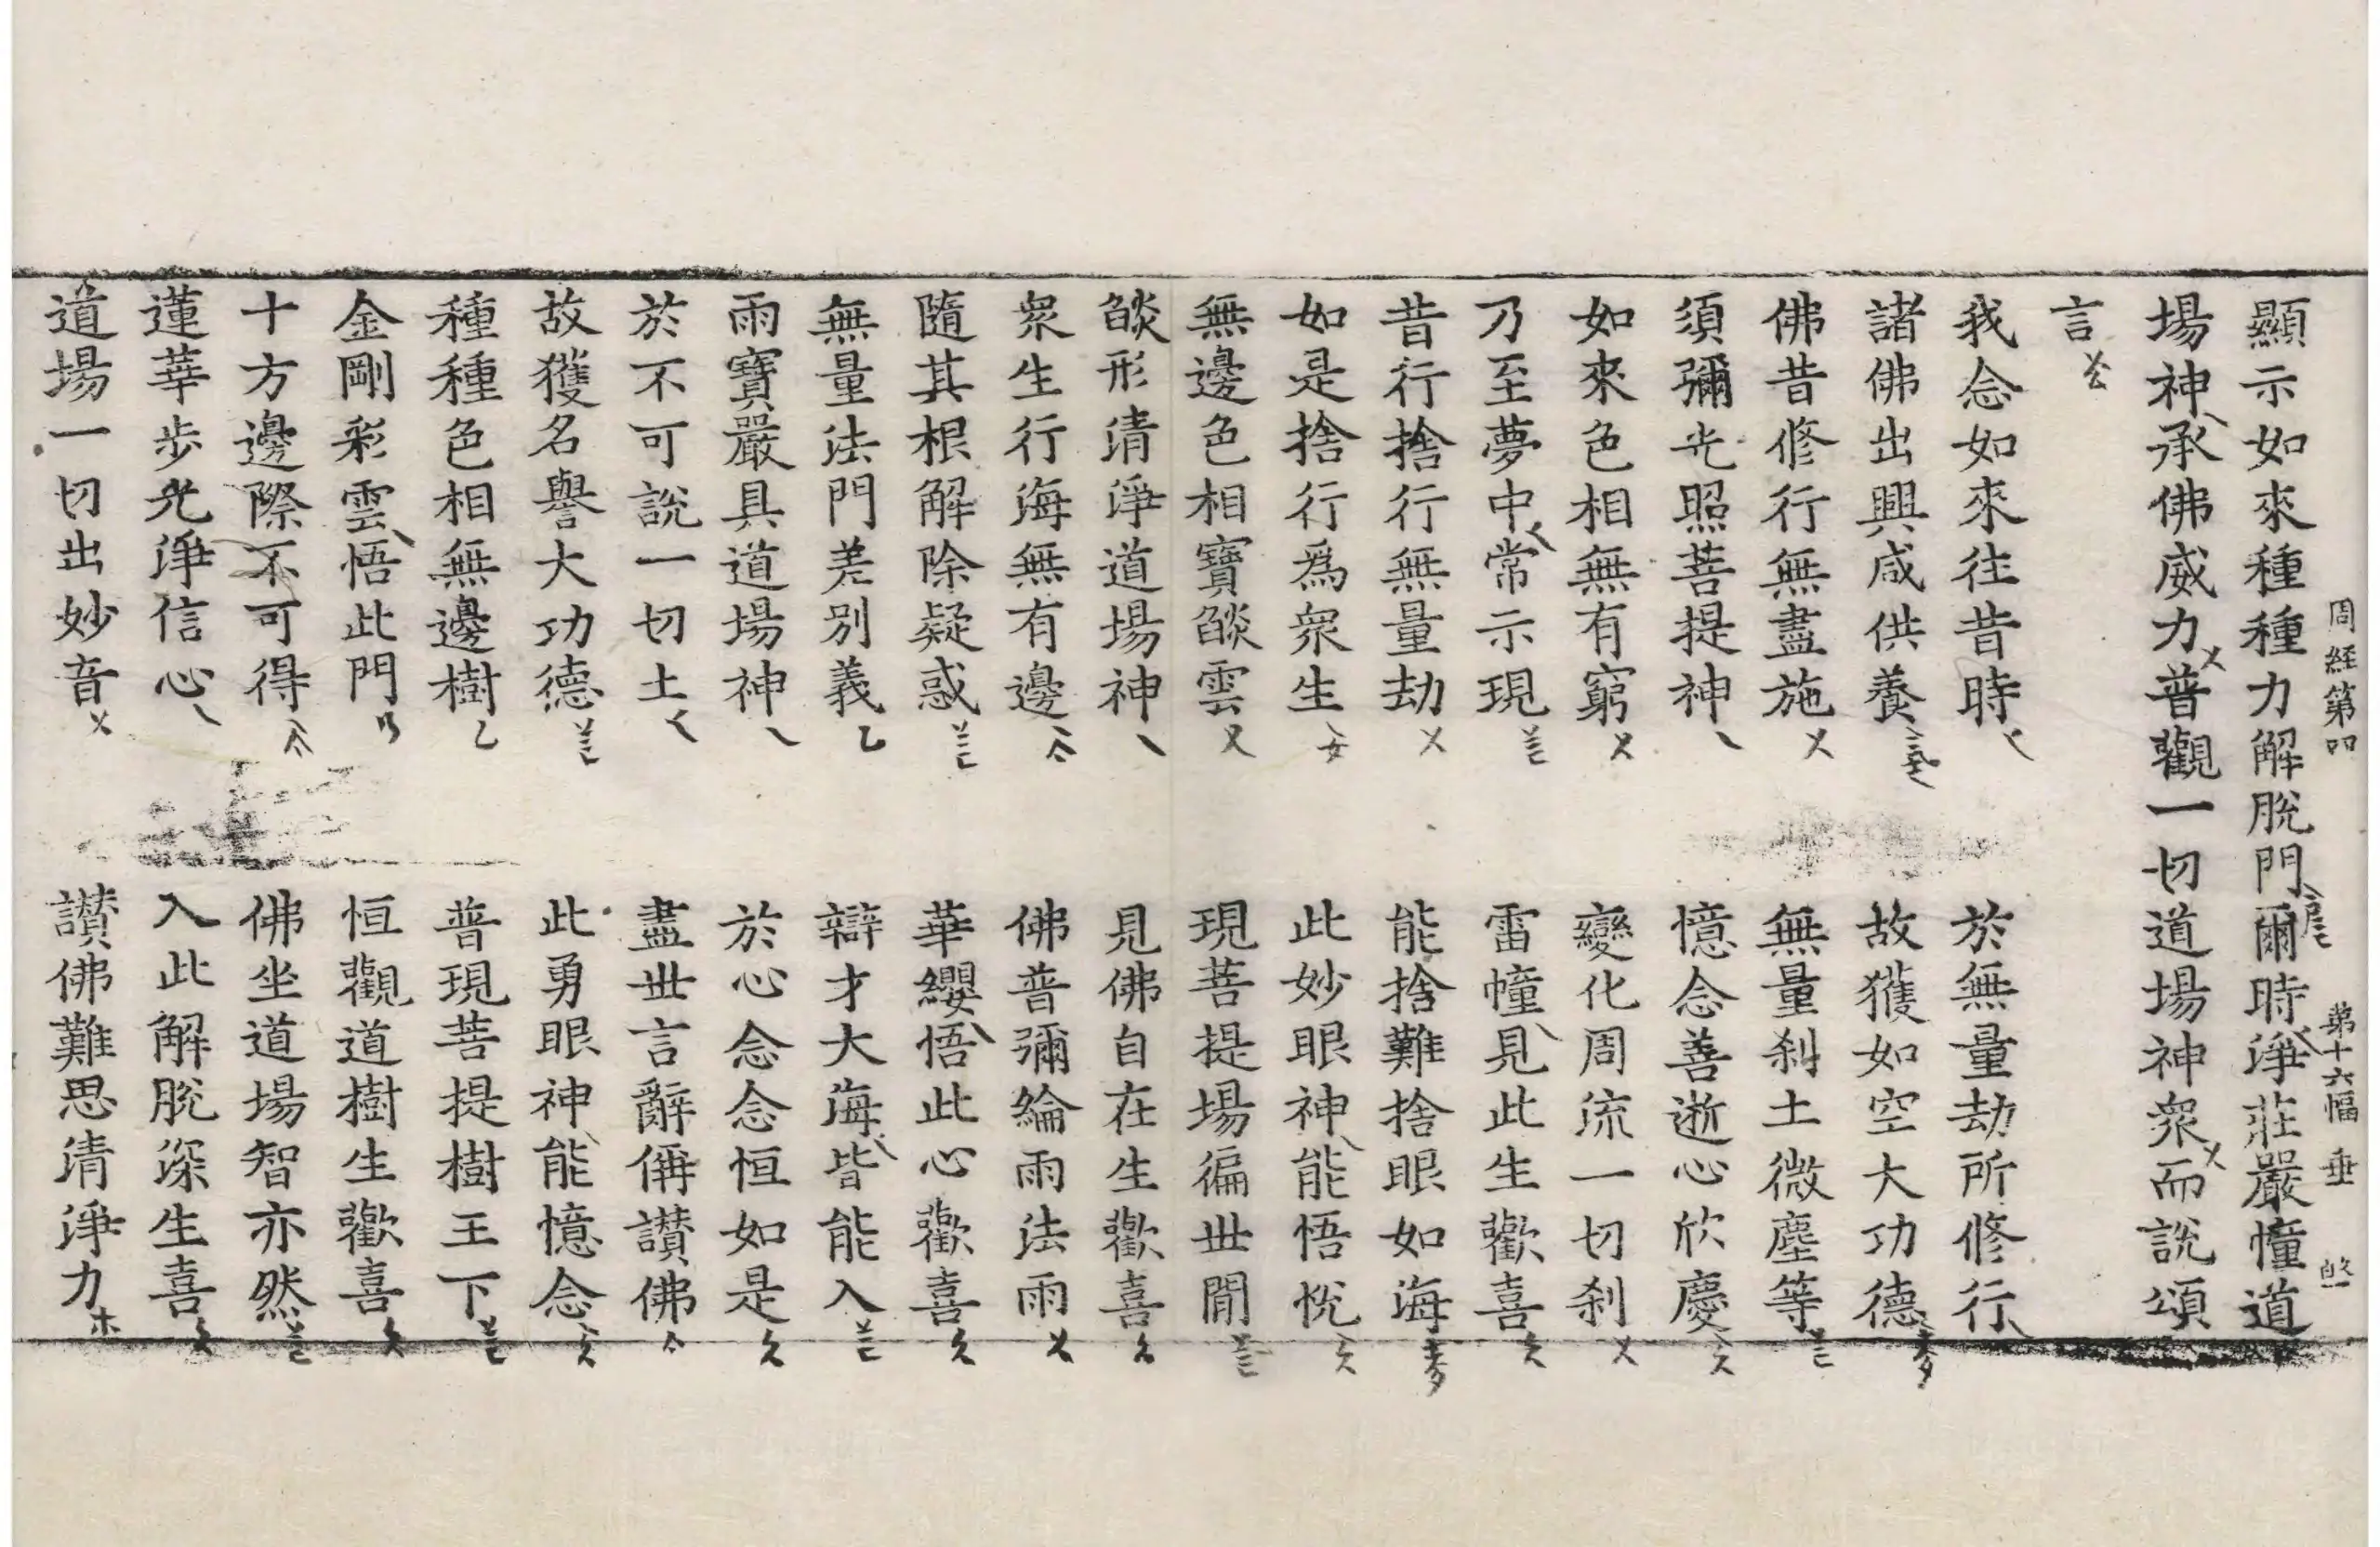 周經第四 第十六幅 垂
顯示如來種種力解脫門爾時淨莊嚴幢道
場神承佛威力普觀一切道場神衆而說頌
言
我念如來往昔時 於無量劫所修行
諸佛出興咸供養 故獲如空大功德
佛昔修行無盡施 無量刹土微塵等
須彌光照菩提神 憶念善逝心欣慶
如來色相無有窮 變化周流一切刹
乃至夢中常示現 雷幢見此生歡喜
昔行捨行無量劫 能捨難捨眼如海
如是捨行爲衆生 此妙眼神能悟悅
無邊色相寶燄雲 現菩提場徧世間
燄形清淨道場神 見佛自在生歡喜
衆生行海無有邊 佛普彌綸雨法雨
隨其根解除疑惑 華纓悟此心歡喜
無量法門差別義 辯才大海皆能入
雨寶嚴具道場神 於心念念恒如是
於不可說一切土 盡世言辭偁讃佛
故獲名譽大功德 此勇眼神能憶念
種種色相無邊樹 普現菩提樹王下
金剛彩雲悟此門 恒觀道樹生歡喜
十方邊際不可得 佛坐道場智亦然
蓮華步光淨信心 入此解脫深生喜
道場一切出妙音 讃佛難思清淨力